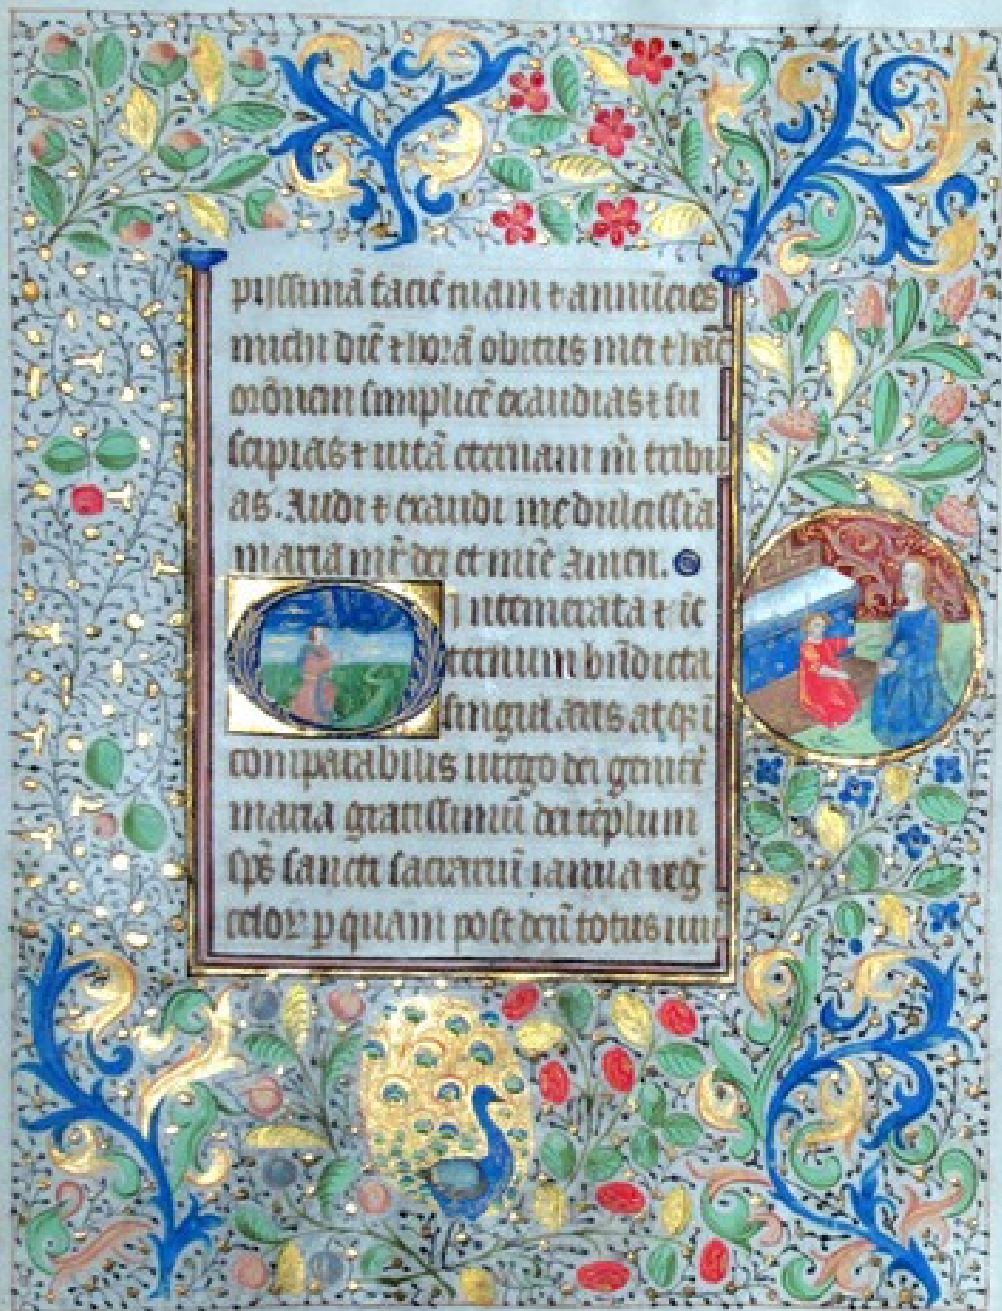 pijssimā faciē tuam ⁊ annūcies
michi diē ⁊ horā obitus mei ⁊ hāc
orōnem simplicē exaudias ⁊ su
scipias ⁊ uitā eternam m̄ tribu
as. Audi ⁊ exaudi me dulcissīa
maria mr̄ dei et mīe Amen.
O Intemerata ⁊ īe
ternum bn̄dicta
singularis atqꝫ ī
comparabilis uirgo dei genitͥ
maria gratissimū dei tēplum
sp̄s sancti sacrariū ianua reg
celoꝝ p quam post deū totus